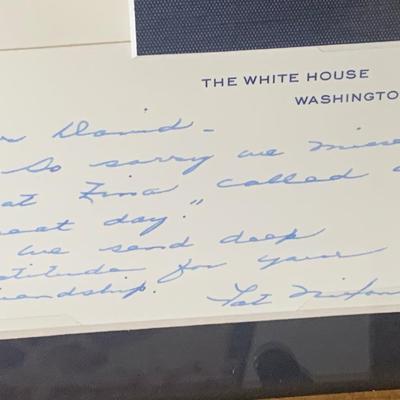 THE WHITE HOUSE
WASHINGTO
David -
So sorry we misse
at Tina called
eat day."
we send deep
titude for your
iendship. Pat Nixon